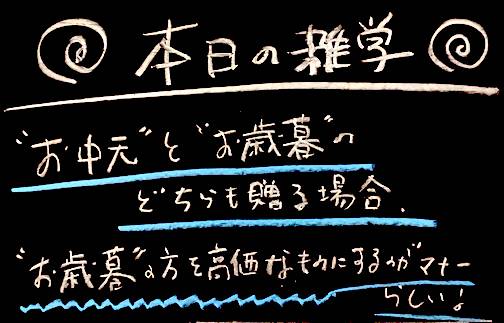 本日の雑学
"お中元"と"お歳暮"の
どちらも贈る場合、
"お歳暮"の方を高価なものにするのがマナー
らしい!